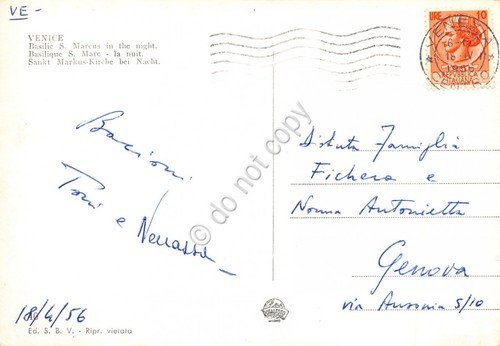 VE-
VENICE
Basilic S. Marcus in the night.
Basilique S. Marc - la nuit.
Sankt Markus-Kirche bei Nacht.
LIRE 10
VENEZIA
1956
Bacioni
Toni e
Distinta Famiglia
Fichera e
Nonna Antonietta
Genova
via Ausonia 5/10
18/4/56
Ed. S. B. V. - Ripr. vietata
© do not copy